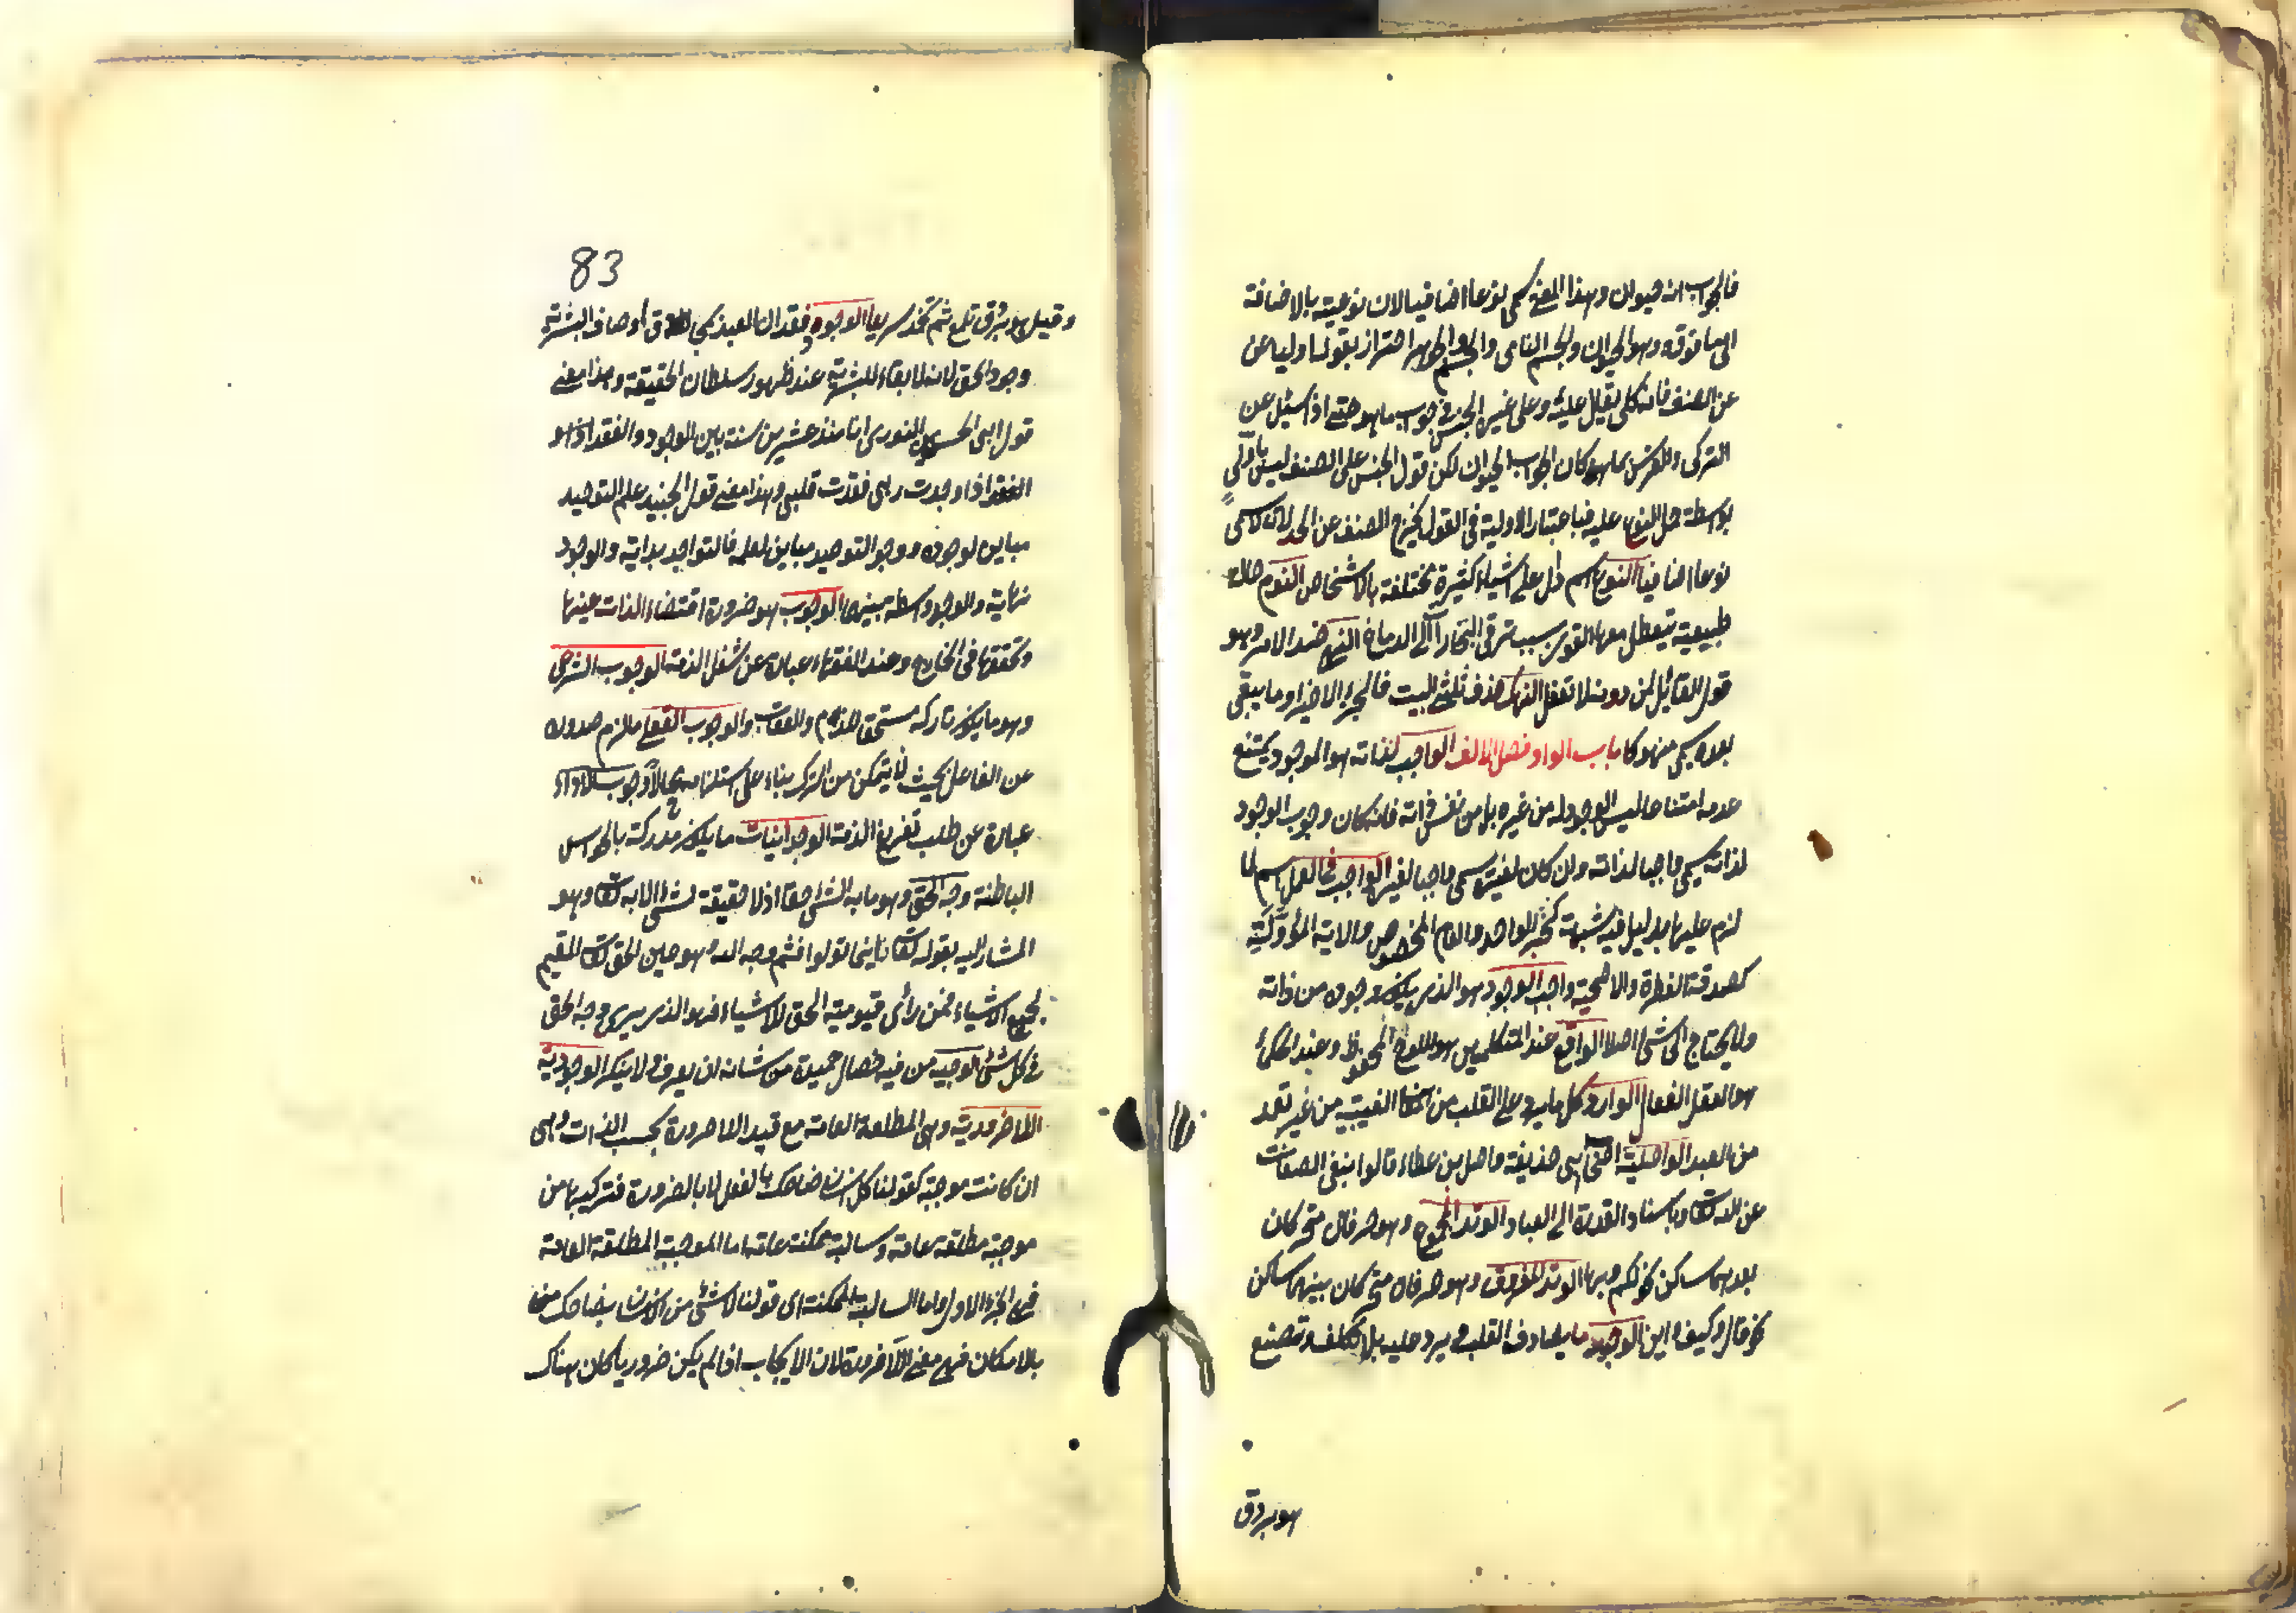 فالجواب انه حيوان وهذا المعنى يسمى نوعا اضافيا لان نوعيته بالاضافة
الى ما فوقه وهو الحيوان والجسم النامى والجسم والجوهر احتراز بقولنا اوليا عن
عن الصنف فانه كلى يقال عليه وعلى غيره الجنس فى جواب ما هو حتى اذا سئل عن
التركى والفرس بما هو كان الجواب الحيوان لكن قول الجنس على الصنف ليس باولى
بواسطة حمل النوع عليه فباعتبار الاولية فى القول يخرج الصنف عن الحد لانه لا يسمى
نوعا اضافيا النوع اسم دل على اشياء كثيرة مختلفة بالاشخاص النوم حالة
طبيعية تتعطل معها القوى بسبب ترقى البخارات الى الدماغ النهى ضد الامر وهو
قول القائل لمن دونه لا تفعل النهك حذف ثلثى البيت فالجزء الاخير وما يبقى
بعده يسمى منهوكا باب الواو فصل الالف الواجب لذاته هو الموجود يمتنع
عدمه امتناعا ليس الوجود له من غيره بل من نفس ذاته فان كان وجوب الوجود
لذاته يسمى واجبا لذاته وان كان لغيره يسمى واجبا لغيره الواجب فى العمل اسم لما
لزم علينا بدليل فيه شبهة كخبر الواحد والعام المخصوص والاية المؤولة
كصدقة الفطرة والاضحية واجب الوجود هو الذى يكون وجوده من ذاته
ولا يحتاج الى شئ اصلا الواقع عند المتكلمين هو اللوح المحفوظ وعند الحكماء
هو العقل الفعال الوارد كل ما يرد على القلب من المعانى الغيبية من غير تعمد
من العبد الواصلية اصحاب ابى حذيفة واصل بن عطاء قالوا بنفى الصفات
عن الله تعالى وباسناد القدرة الى العباد الوتد المجموع وهو حرفان متحركان
بعدهما ساكن نحو لكم وبها الوتد المفروق وهو حرفان متحركان بينهما ساكن
نحو قال وكيف واين الوجد ما يصادف القلب ويرد عليه بلا تكلف وتصنع
هو بروق
83
وقيل هو بروق تلمع ثم تخمد سريعا الوجود فقدان العبد بمحاق اوصاف البشرية
وجود الحق لانه لا بقاء للبشرية عند ظهور سلطان الحقيقة وهذا معنى
قول ابى الحسين النورى انا منذ عشرين سنة بين الوجود والفقد اذا هو
الفقد اذا وجدت ربى فقدت قلبى وهذا معنى قول الجنيد علم التوحيد
مباين لوجوده ووجود التوحيد مباين لعلمه فالتواجد بداية والوجود
نهاية والوجد واسطة بينهما الوجوب هو ضرورة اقتضاء الذات عينها
وتحققها فى الخارج وعند الفقهاء عبارة عن شغل الذمة الوجوب الشرعى
وهو ما يكون تاركه مستحق الذم والعقاب والوجوب العقلى ما لزم صدوره
عن الفاعل بحيث لا يتمكن من الترك بناء على استلزامه محالا وجوب الاداء
عبارة عن طلب تفريغ الذمة الوجدانيات ما يكون مدركة بالحواس
الباطنة وجه الحق وهو ما به الشئ حقا اذ لا حقيقة لشئ الا به تعالى وهو
المشار اليه بقوله تعالى فاينما تولوا فثم وجه الله وهو عين الحق تعالى المقيم
لجميع الاشياء فمن رأى قيومية الحق للاشياء فهو الذى يرى وجه الحق
فى كل شئ الوجيه من فيه خصال حميدة من شانه ان يعرف ولا ينكر الوجودية
اللا ضرورية وهى المطلقة العامة مع قيد اللا ضرورة بحسب الذات وهى
ان كانت موجبة كقولنا كل انسان ضاحك بالفعل لا بالضرورة فتركيبها من
موجبة مطلقة عامة وسالبة ممكنة عامة اما الموجبة المطلقة العامة
فهى الجزء الاول واما السالبة الممكنة اى قولنا لا شئ من الانسان بضاحك
بالامكان فهى معنى اللا ضرورة لان الايجاب اذا لم يكن ضروريا كان هناك